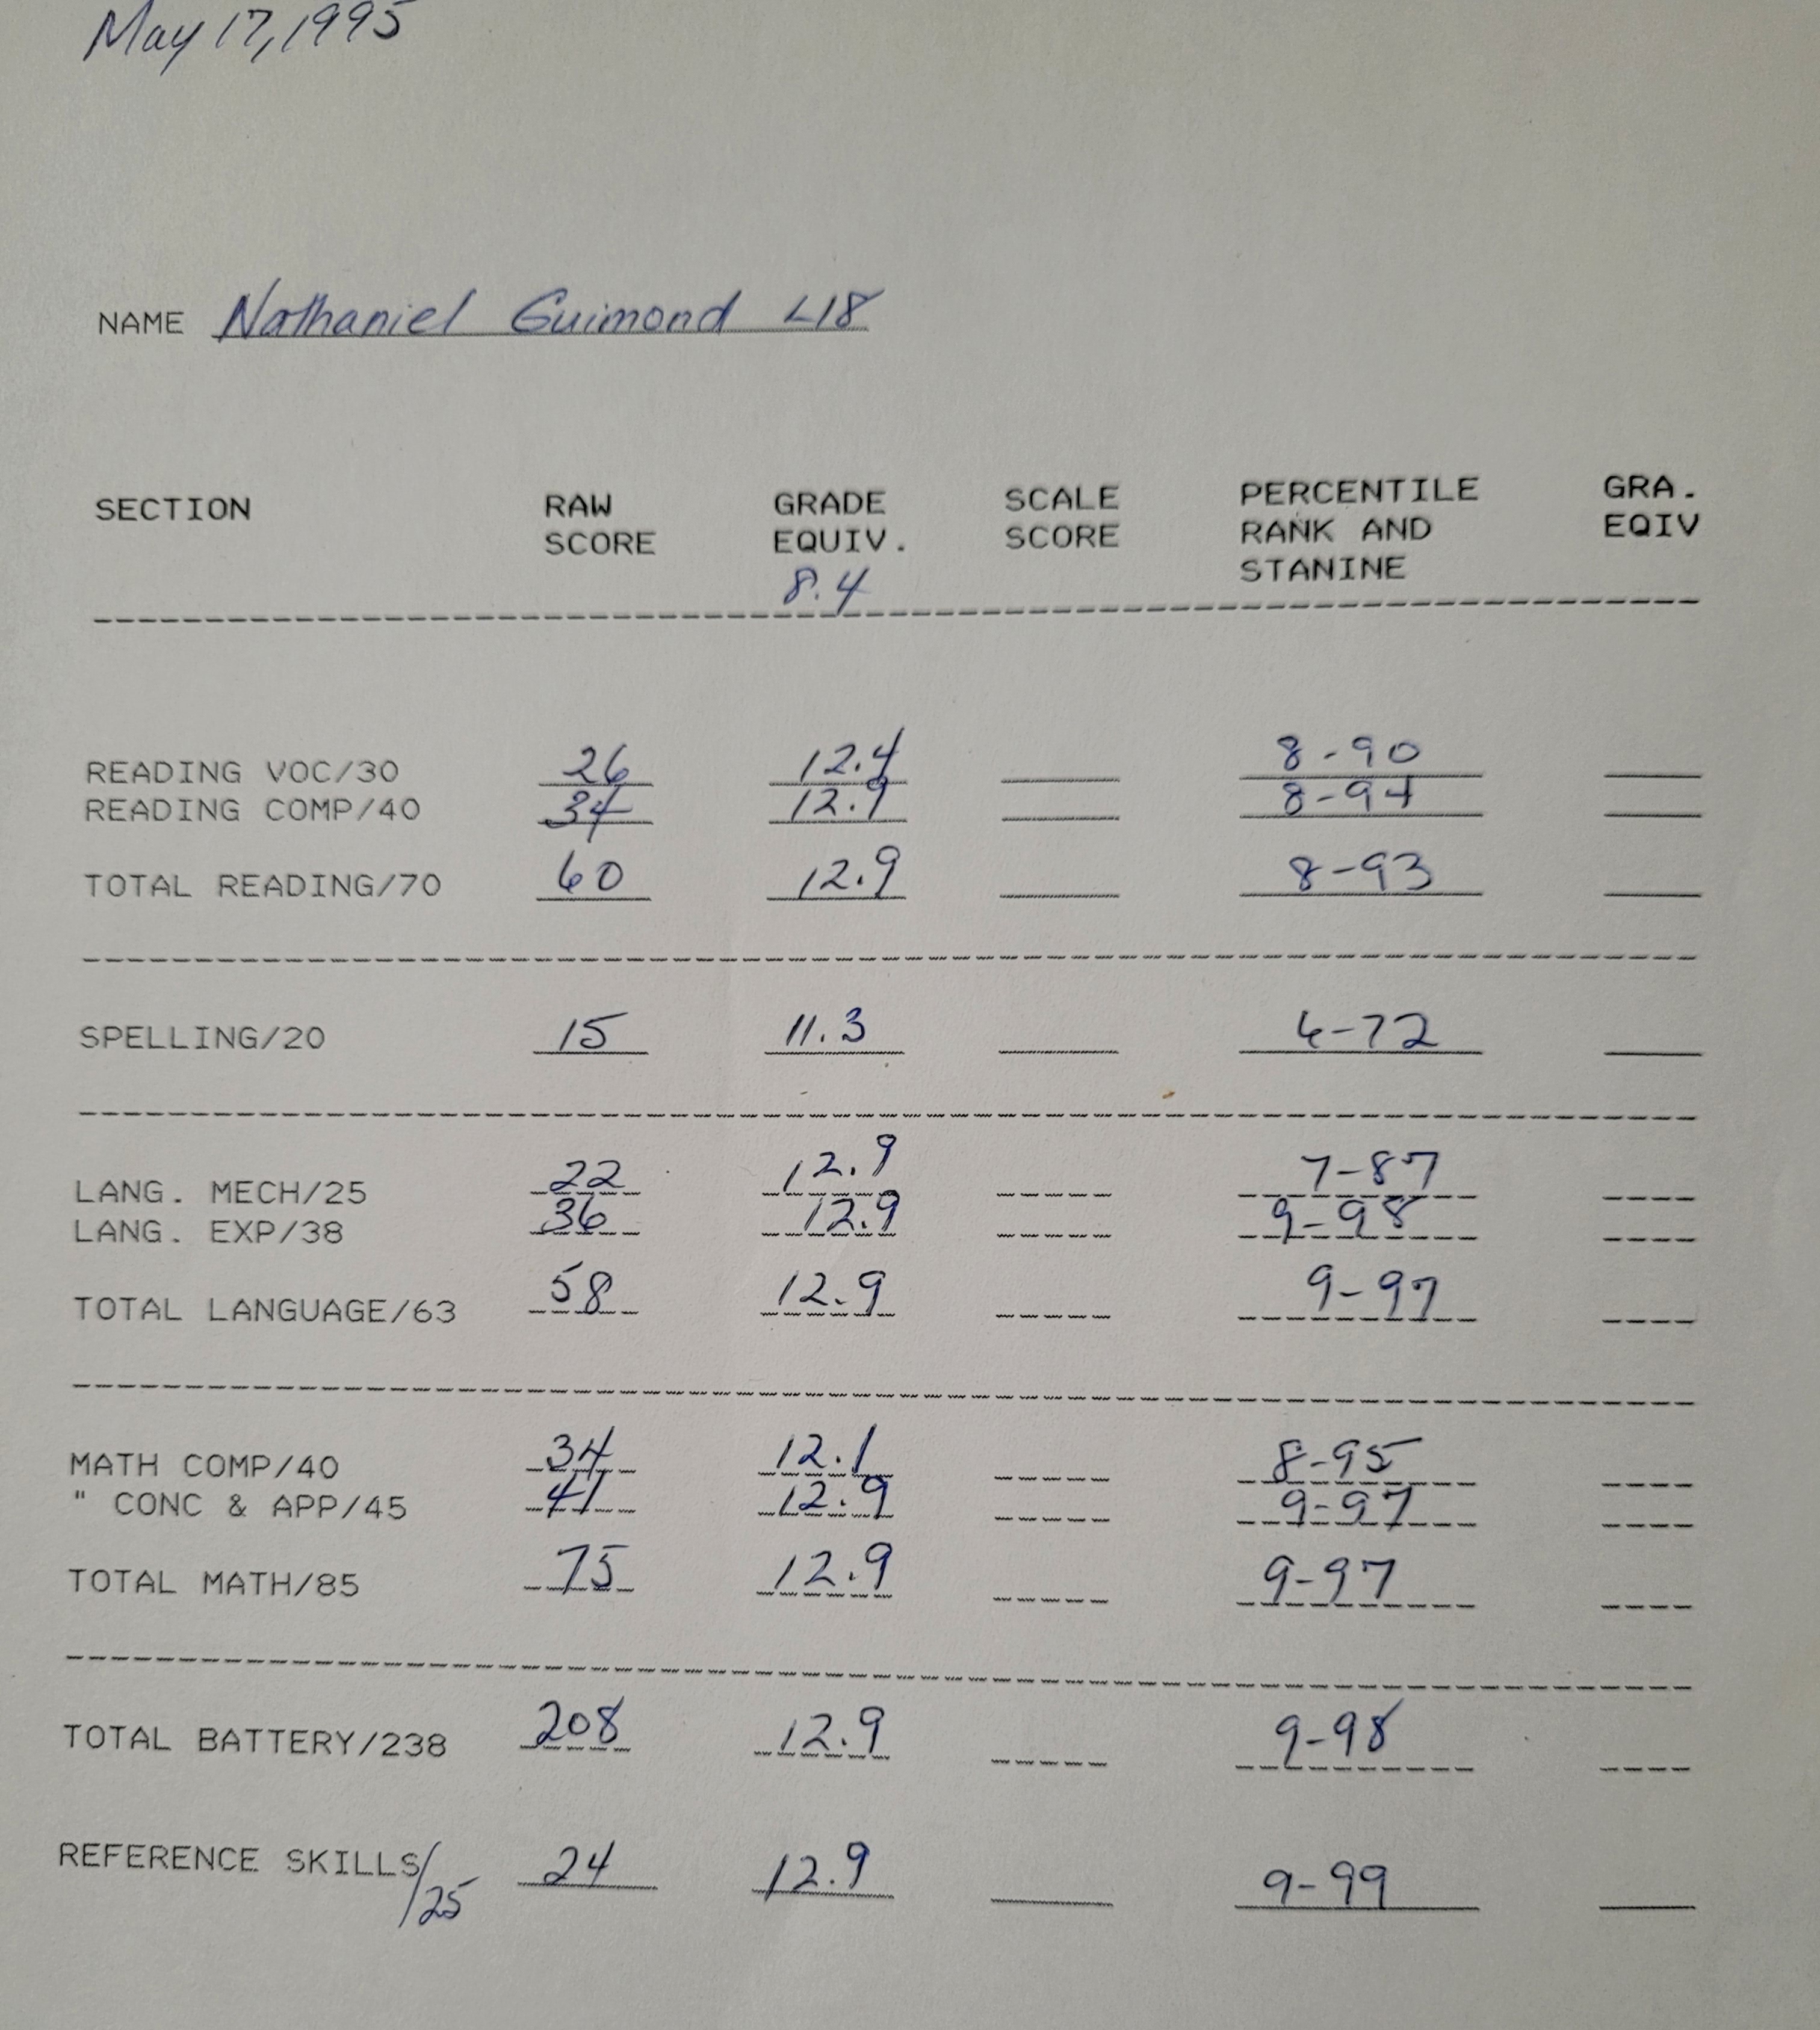 May 17, 1995
NAME Nathaniel Guimond L18
SECTION RAW SCORE GRADE EQUIV. SCALE SCORE PERCENTILE RANK AND STANINE GRA. EQIV
8.4
READING VOC/30 26 12.4 8-90
READING COMP/40 34 12.9 8-94
TOTAL READING/70 60 12.9 8-93
SPELLING/20 15 11.3 6-72
LANG. MECH/25 22 12.9 7-87
LANG. EXP/38 36 12.9 9-98
TOTAL LANGUAGE/63 58 12.9 9-97
MATH COMP/40 34 12.1 8-95
" CONC & APP/45 41 12.9 9-97
TOTAL MATH/85 75 12.9 9-97
TOTAL BATTERY/238 208 12.9 9-98
REFERENCE SKILLS/25 24 12.9 9-99